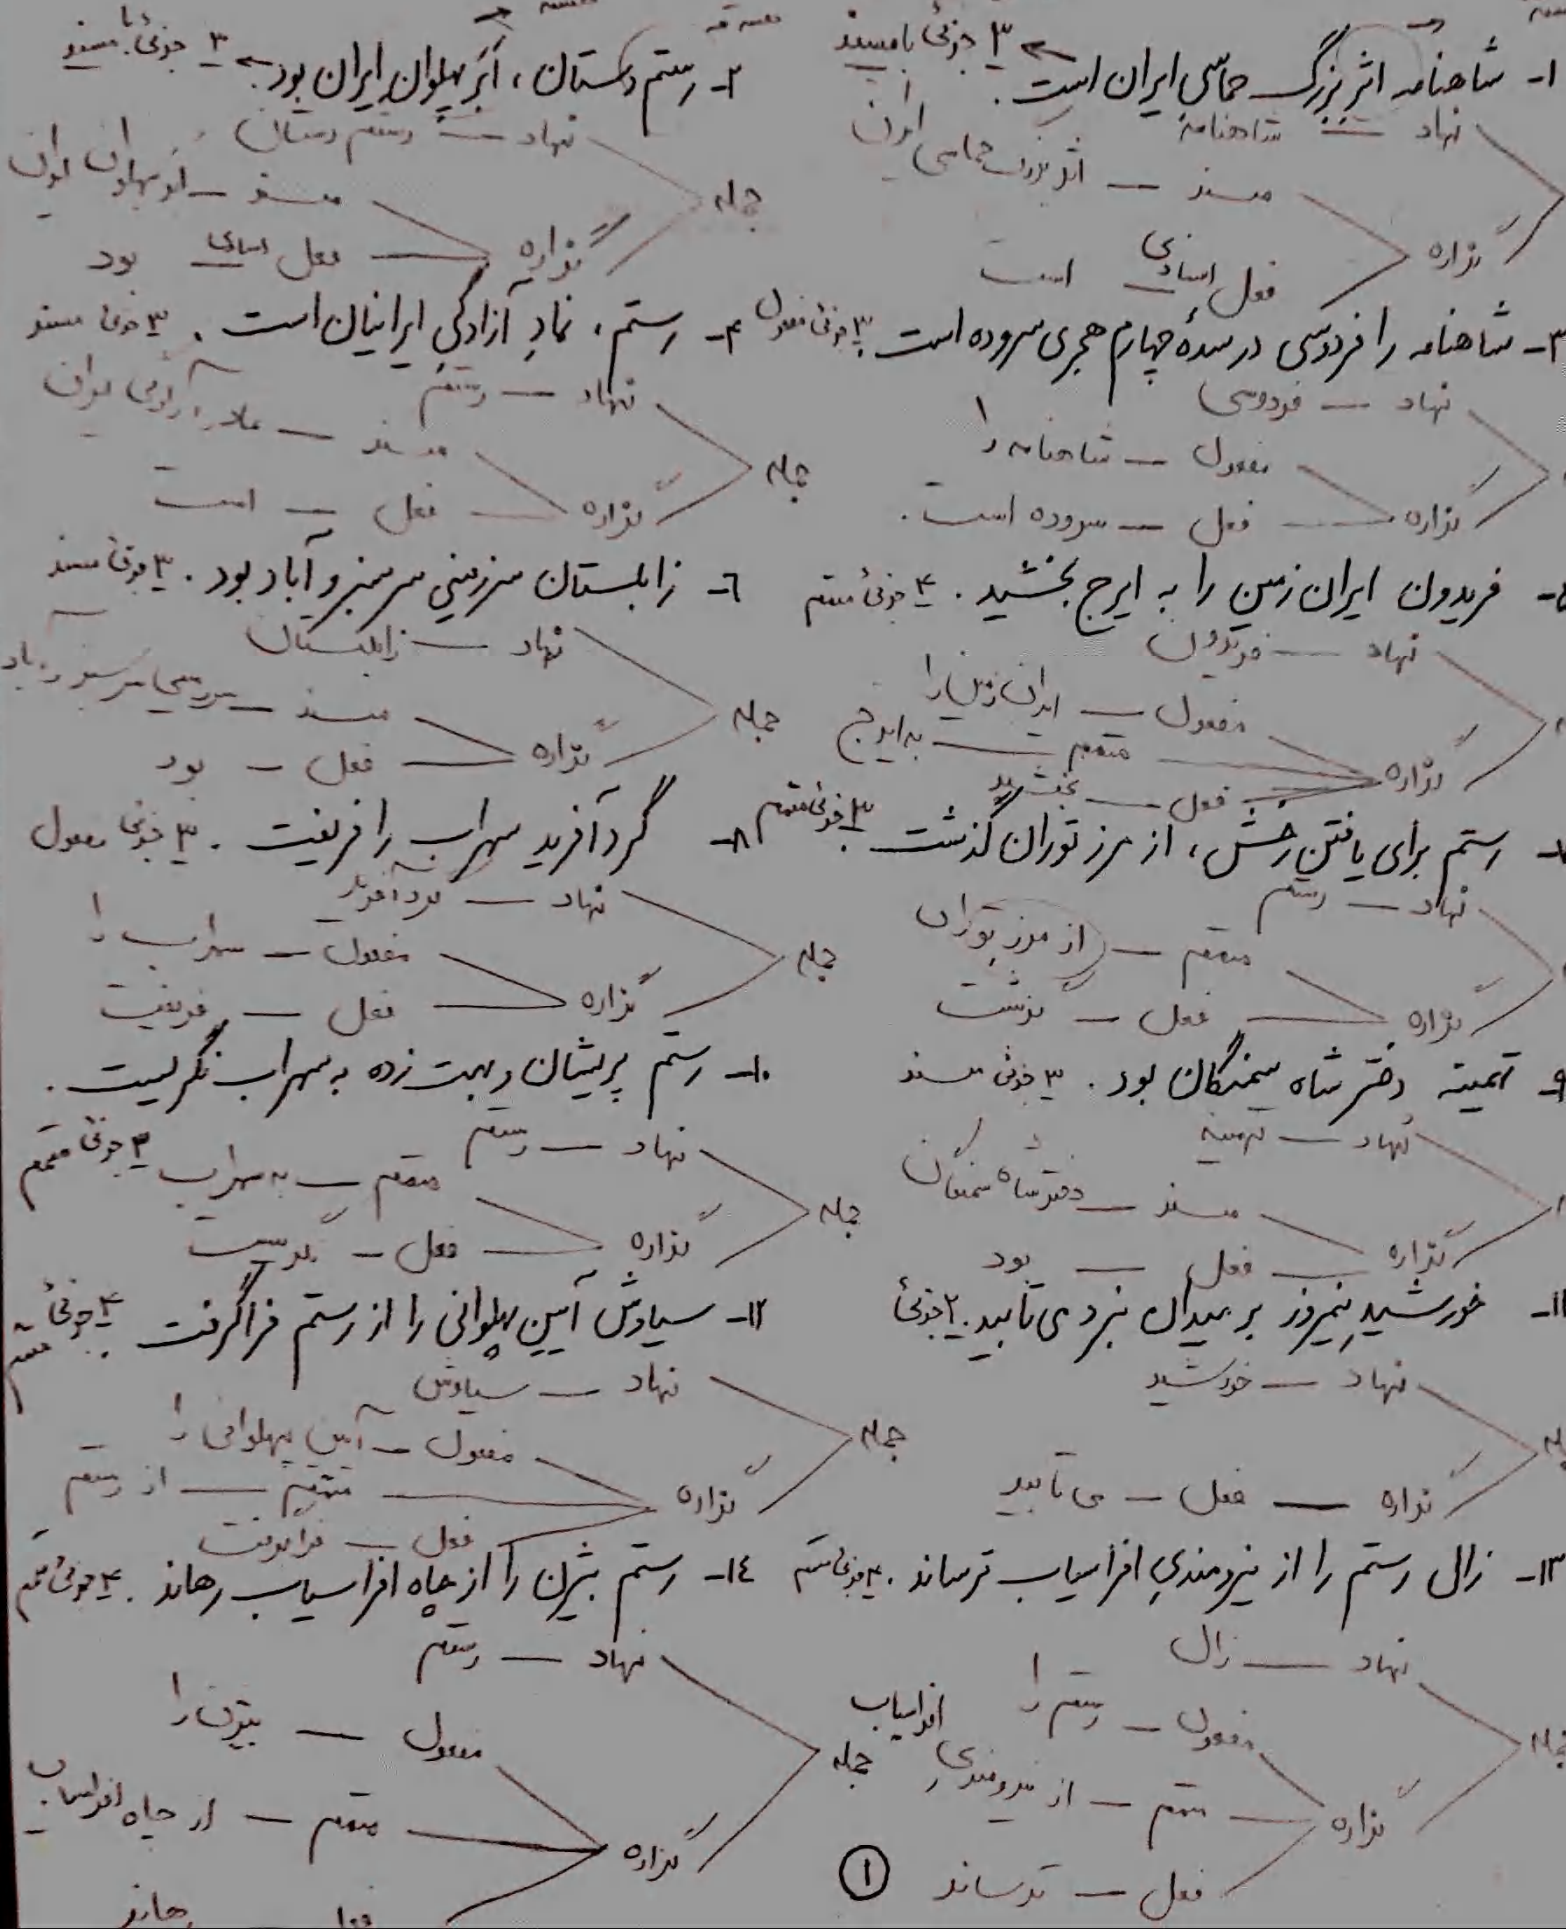 ۱- شاهنامه اثر بزرگ حماسی ایران است. ← ۳ جزئی با مسند
نهاد — شاهنامه
مسند — اثر بزرگ حماسی ایران
گزاره
فعل اسنادی است
۲- رستم دستان، ابَر پهلوانِ ایران بود. ← ۳ جزئی با مسند
نهاد — رستم دستان
جمله
مسند — ابر پهلوان ایران
گزاره
فعل اسنادی بود
۳- شاهنامه را فردوسی در سدهٔ چهارم هجری سروده است. ۳ جزئی مفعول
نهاد — فردوسی
مفعول — شاهنامه را
گزاره
فعل — سروده است.
۴- رستم، نمادِ آزادگیِ ایرانیان است. ۳ جزئی مسند
نهاد — رستم
مسند —
جمله
گزاره
فعل — است
فریدون ایران زمین را به ایرج بخشید. ۴ جزئی متمم
نهاد — فریدون
مفعول — ایران زمین را
متمم — به ایرج
گزاره
فعل — بخشید
۶- زابلستان سرزمینی سرسبز و آباد بود. ۳ جزئی مسند
نهاد — زابلستان
مسند — سرزمینی سرسبز و آباد
جمله
گزاره
فعل — بود
رستم برای یافتنِ رخش، از مرز توران گذشت. ۳ جزئی متمم
نهاد — رستم
متمم — از مرز توران
گزاره
فعل — گذشت
۸- گردآفرید سهراب را فریفت. ۳ جزئی مفعول
نهاد — گردآفرید
مفعول — سهراب را
جمله
گزاره
فعل — فریفت
۹- تهمینه دختر شاه سمنگان بود. ۳ جزئی مسند
نهاد — تهمینه
مسند — دختر شاه سمنگان
گزاره
فعل — بود
۱۰- رستم پریشان و بهت زده به سهراب نگریست.
۳ جزئی متمم
نهاد — رستم
متمم — به سهراب
جمله
گزاره
فعل — نگریست
۱۱- خورشیدِ نیمروز بر میدان نبرد می تابید. ۲ جزئی
نهاد — خورشید
گزاره — فعل — می تابید
۱۲- سیاوش آیین پهلوانی را از رستم فراگرفت. ۴ جزئی متمم
نهاد — سیاوش
مفعول — آیین پهلوانی را
جمله
متمم — از رستم
گزاره
فعل — فراگرفت
۱۳- زال رستم را از نیرومندیِ افراسیاب ترساند. ۴ جزئی متمم
نهاد — زال
مفعول — رستم را
جمله
متمم — از نیرومندی افراسیاب
گزاره
فعل — ترساند
۱۴- رستم بیژن را از چاه افراسیاب رهاند. ۴ جزئی متمم
نهاد — رستم
مفعول — بیژن را
جمله
متمم — از چاه افراسیاب
گزاره
فعل — رهاند
۱